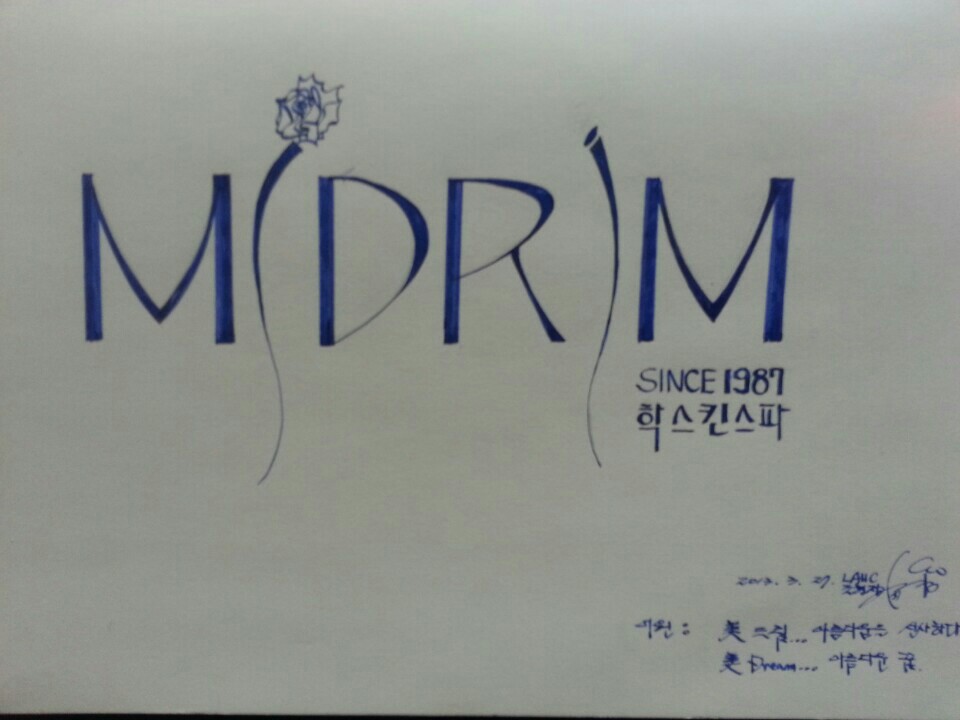 MIDRIM
SINCE 1987
학스킨스파
2013. 3. 27. LAHC
美 드림... 아름다운
美 Dream... 아름다운 꿈.